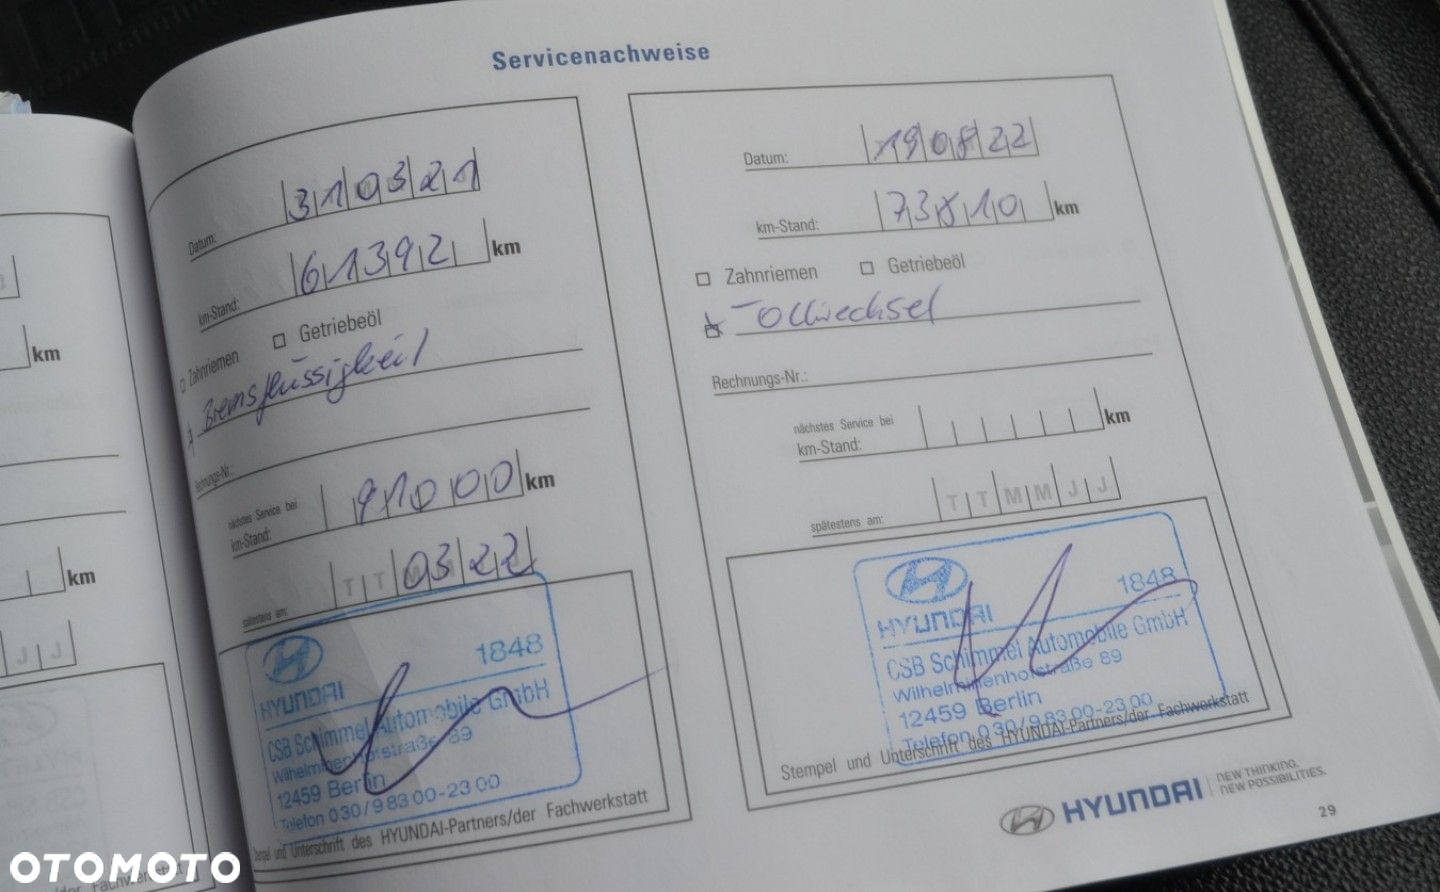 Servicenachweise
Datum: 31 03 21
km-Stand: 61392 km
Zahnriemen Getriebeöl
Bremsflüssigkeit
Rechnungs-Nr.:
nächstes Service bei
km-Stand: 91000 km
spätestens am: T T 03 22
HYUNDAI 1848
CSB Schimmel Automobile GmbH
Wilhelminenhofstraße 89
12459 Berlin
Telefon 030/9 83 00-23 00
Stempel und Unterschrift des HYUNDAI-Partners/der Fachwerkstatt
Datum: 19 08 22
km-Stand: 73810 km
Zahnriemen Getriebeöl
- Ölwechsel
Rechnungs-Nr.:
nächstes Service bei
km-Stand: km
spätestens am: T T M M J J
HYUNDAI 1848
CSB Schimmel Automobile GmbH
Wilhelminenhofstraße 89
12459 Berlin
Telefon 030/9 83 00-23 00
Stempel und Unterschrift des HYUNDAI-Partners/der Fachwerkstatt
HYUNDAI NEW THINKING.
NEW POSSIBILITIES.
29
km
km
J J
OTOMOTO